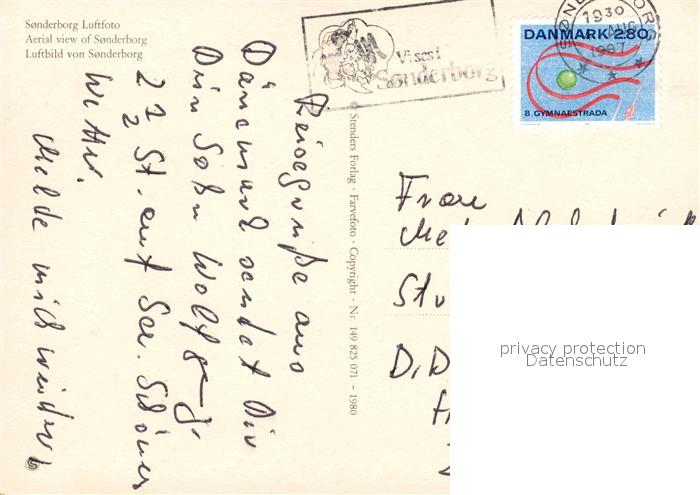 Sønderborg Luftfoto
Aerial view of Sønderborg
Luftbild von Sønderborg
Vi ses i
Sønderborg
SØNDERBORG
1930
AUG
1987
DANMARK 2.80
8. GYMNAESTRADA
Reisegrüße aus
Dänemark sendet Dir
Dein Sohn Wolfgang.
2 St. auf See. Schönes
Wetter.
Melde mich wieder!
© Stenders Forlag · Farvefoto · Copyright · Nr. 149 825 071 – 1980
Frau
D.D
privacy protection
Datenschutz